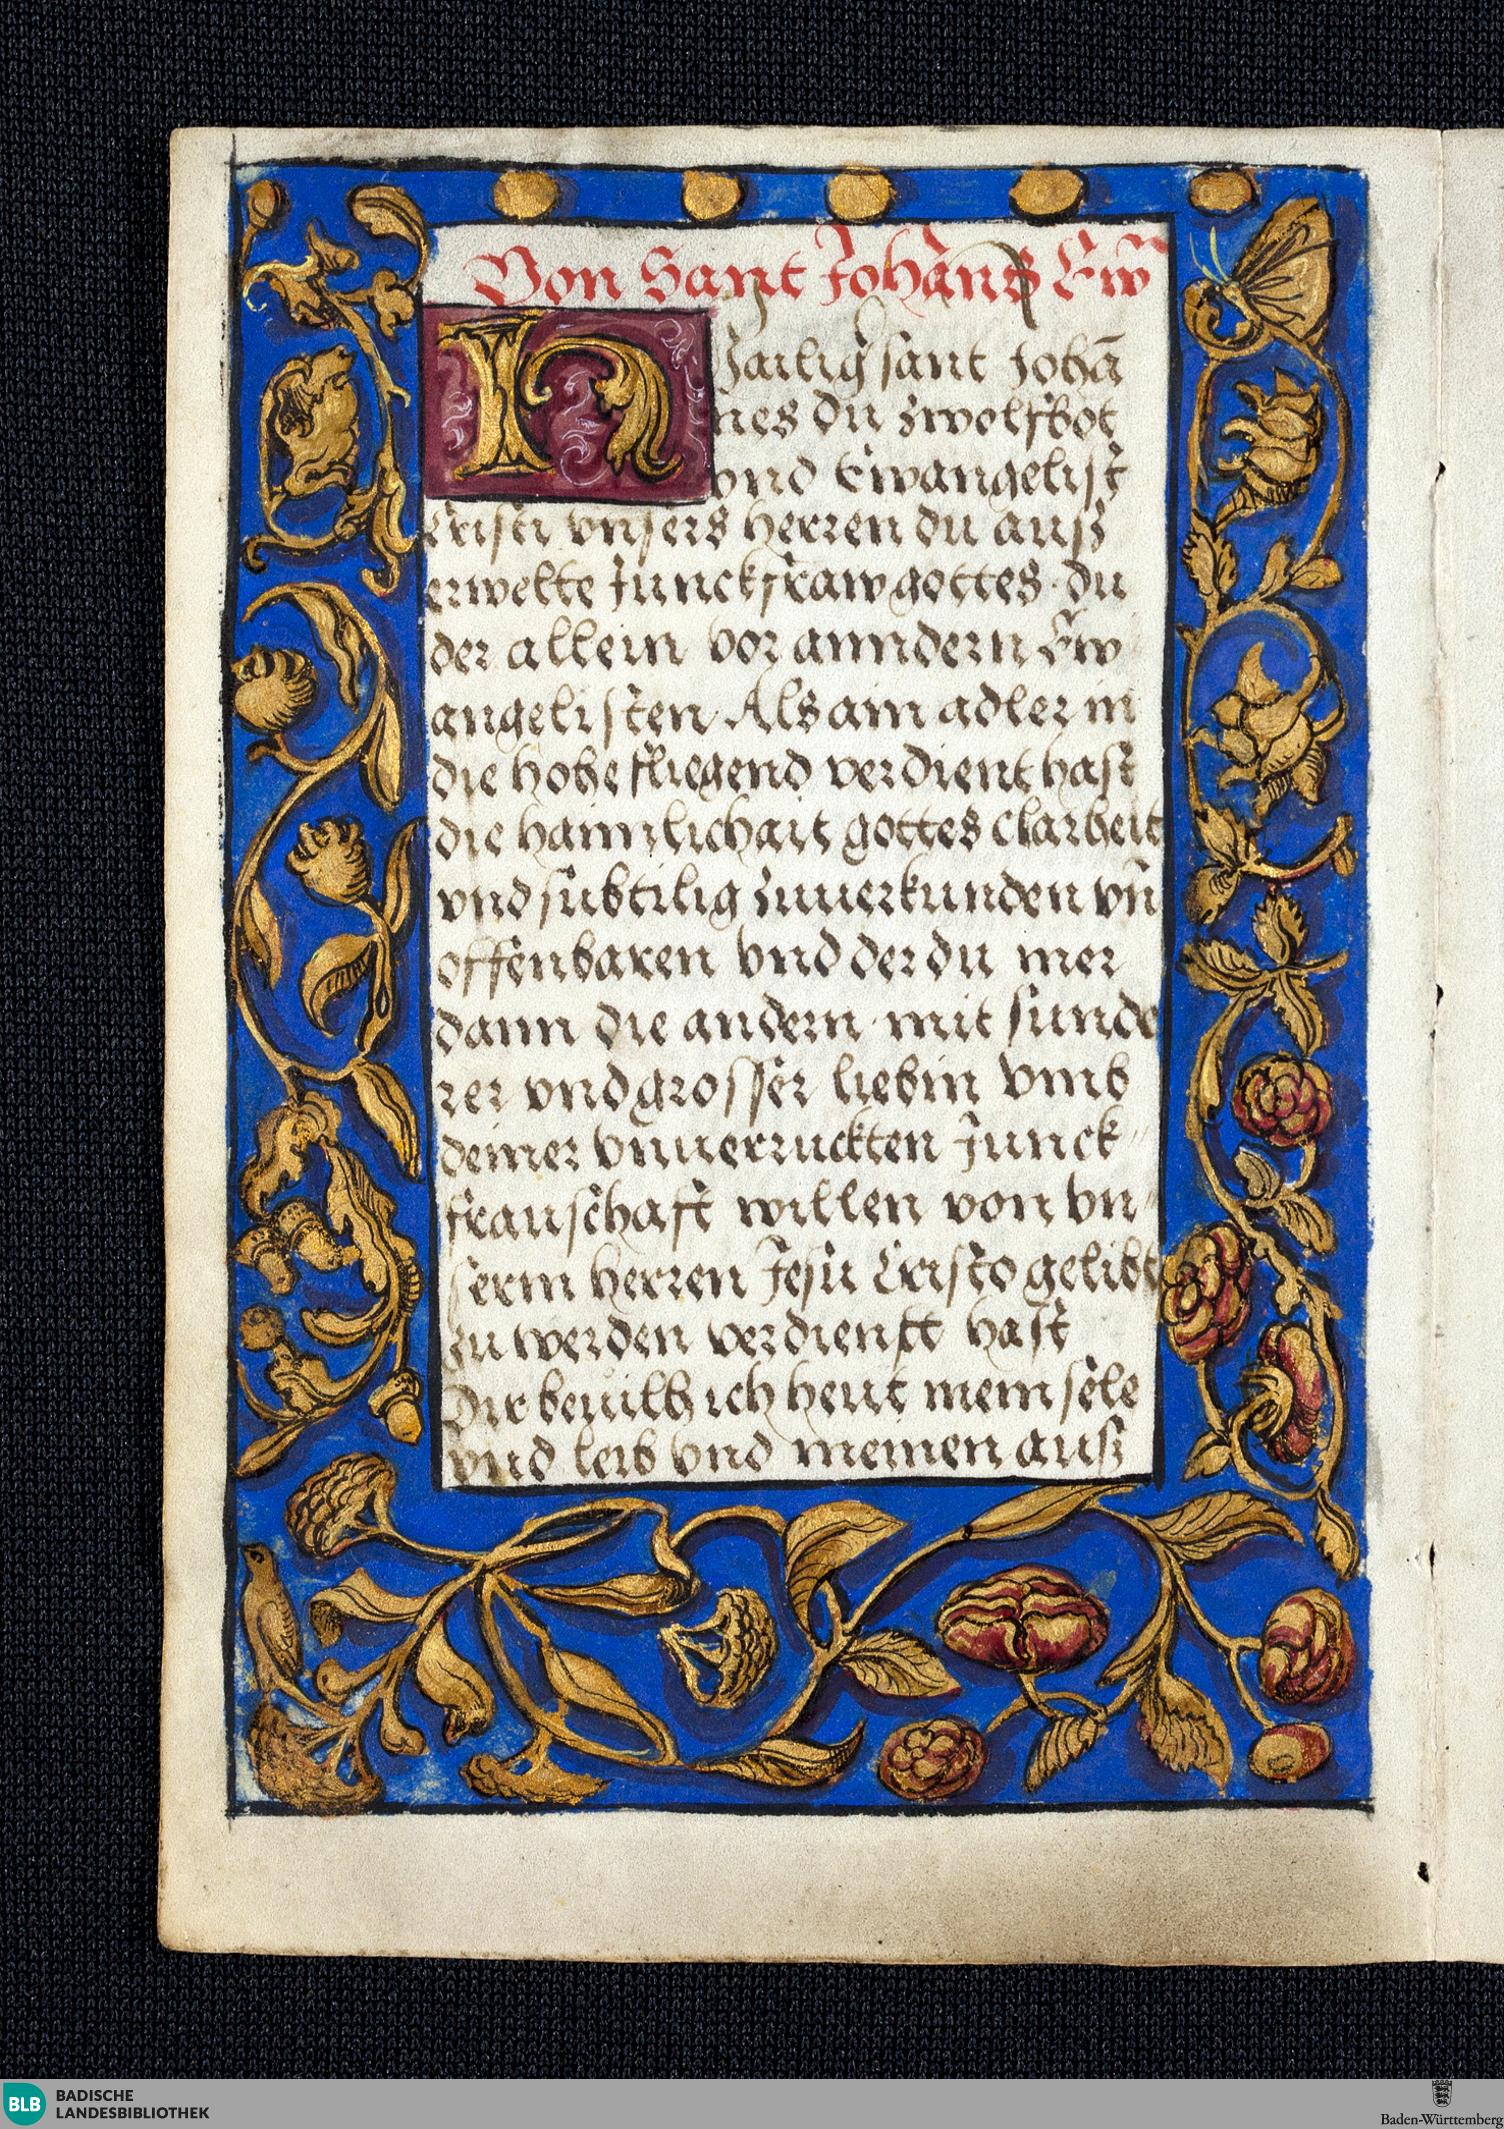 Von Sant Johanns Ew̄
H Hailig sant Johā
nes du zwolfbot
vnd Ewangelist
Cristi vnsers herren du auß
erwelte Junckfraw gottes · du
der allein vor anndern Ew
angelisten Als ain adler in
die hohe fliegend verdient hast
die haimlichait gottes clarheit
vnd subtilig zuuerkunden vn̄
offenbaren vnd der du mer
dann die andern mit sunde
rer vnd grosser lieb in vmb
deiner vnuerruckten Junck"
frauschafft willen von vn"
serm herren Jesu Cristo gelibt
zu werden verdienst hast
Dir beuilh ich heut mein sele
vnd leib vnd meinen auß
BLB BADISCHE
LANDESBIBLIOTHEK
Baden-Württemberg